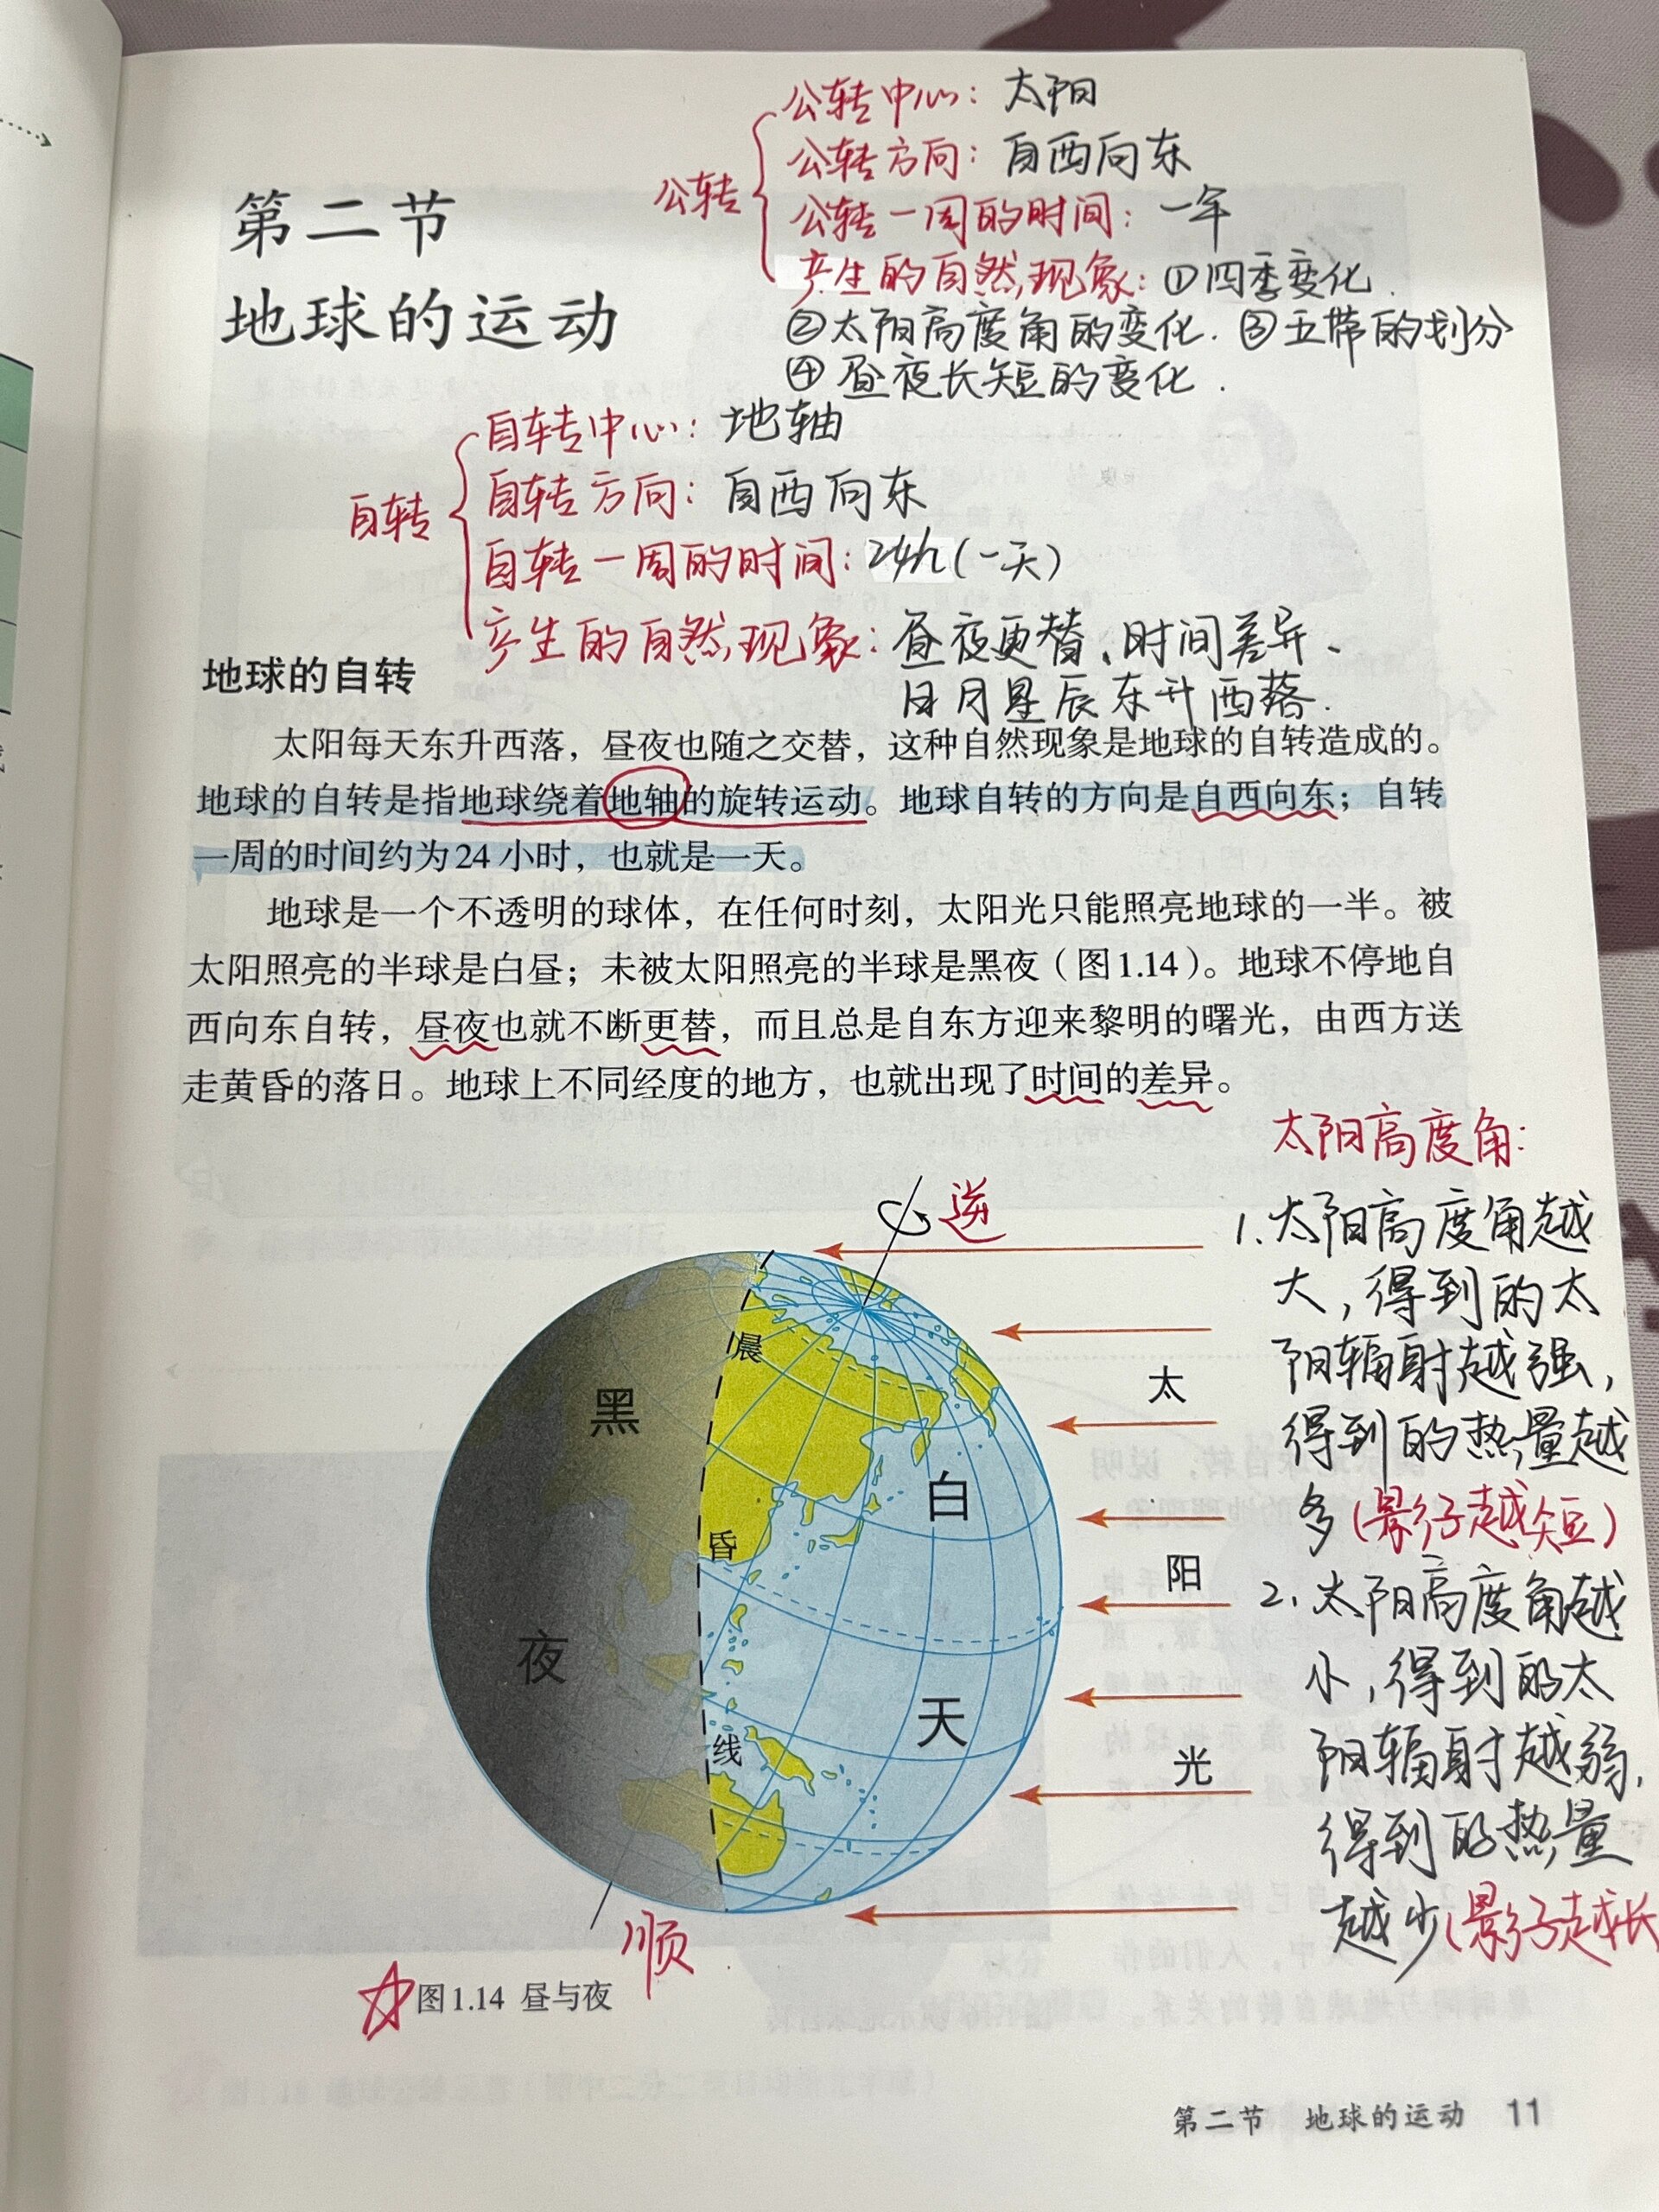 公转中心：太阳
公转方向：自西向东
公转
公转一周的时间：一年
产生的自然现象：①四季变化.
②太阳高度角的变化.③五带的划分
④昼夜长短的变化.
第二节
地球的运动
自转中心：地轴
自转方向：自西向东
自转
自转一周的时间：24h(一天)
产生的自然现象：昼夜更替、时间差异、
日月星辰东升西落.
地球的自转
太阳每天东升西落，昼夜也随之交替，这种自然现象是地球的自转造成的。
地球的自转是指地球绕着地轴的旋转运动。地球自转的方向是自西向东；自转
一周的时间约为24小时，也就是一天。
地球是一个不透明的球体，在任何时刻，太阳光只能照亮地球的一半。被
太阳照亮的半球是白昼；未被太阳照亮的半球是黑夜（图1.14）。地球不停地自
西向东自转，昼夜也就不断更替，而且总是自东方迎来黎明的曙光，由西方送
走黄昏的落日。地球上不同经度的地方，也就出现了时间的差异。
太阳高度角：
1.太阳高度角越
大，得到的太
阳辐射越强，
得到的热量越
多(影子越短)
2.太阳高度角越
小，得到的太
阳辐射越弱，
得到的热量
越少(影子越长
逆
晨
昏
线
黑
夜
白
天
太
阳
光
顺
图1.14 昼与夜
第二节 地球的运动 11